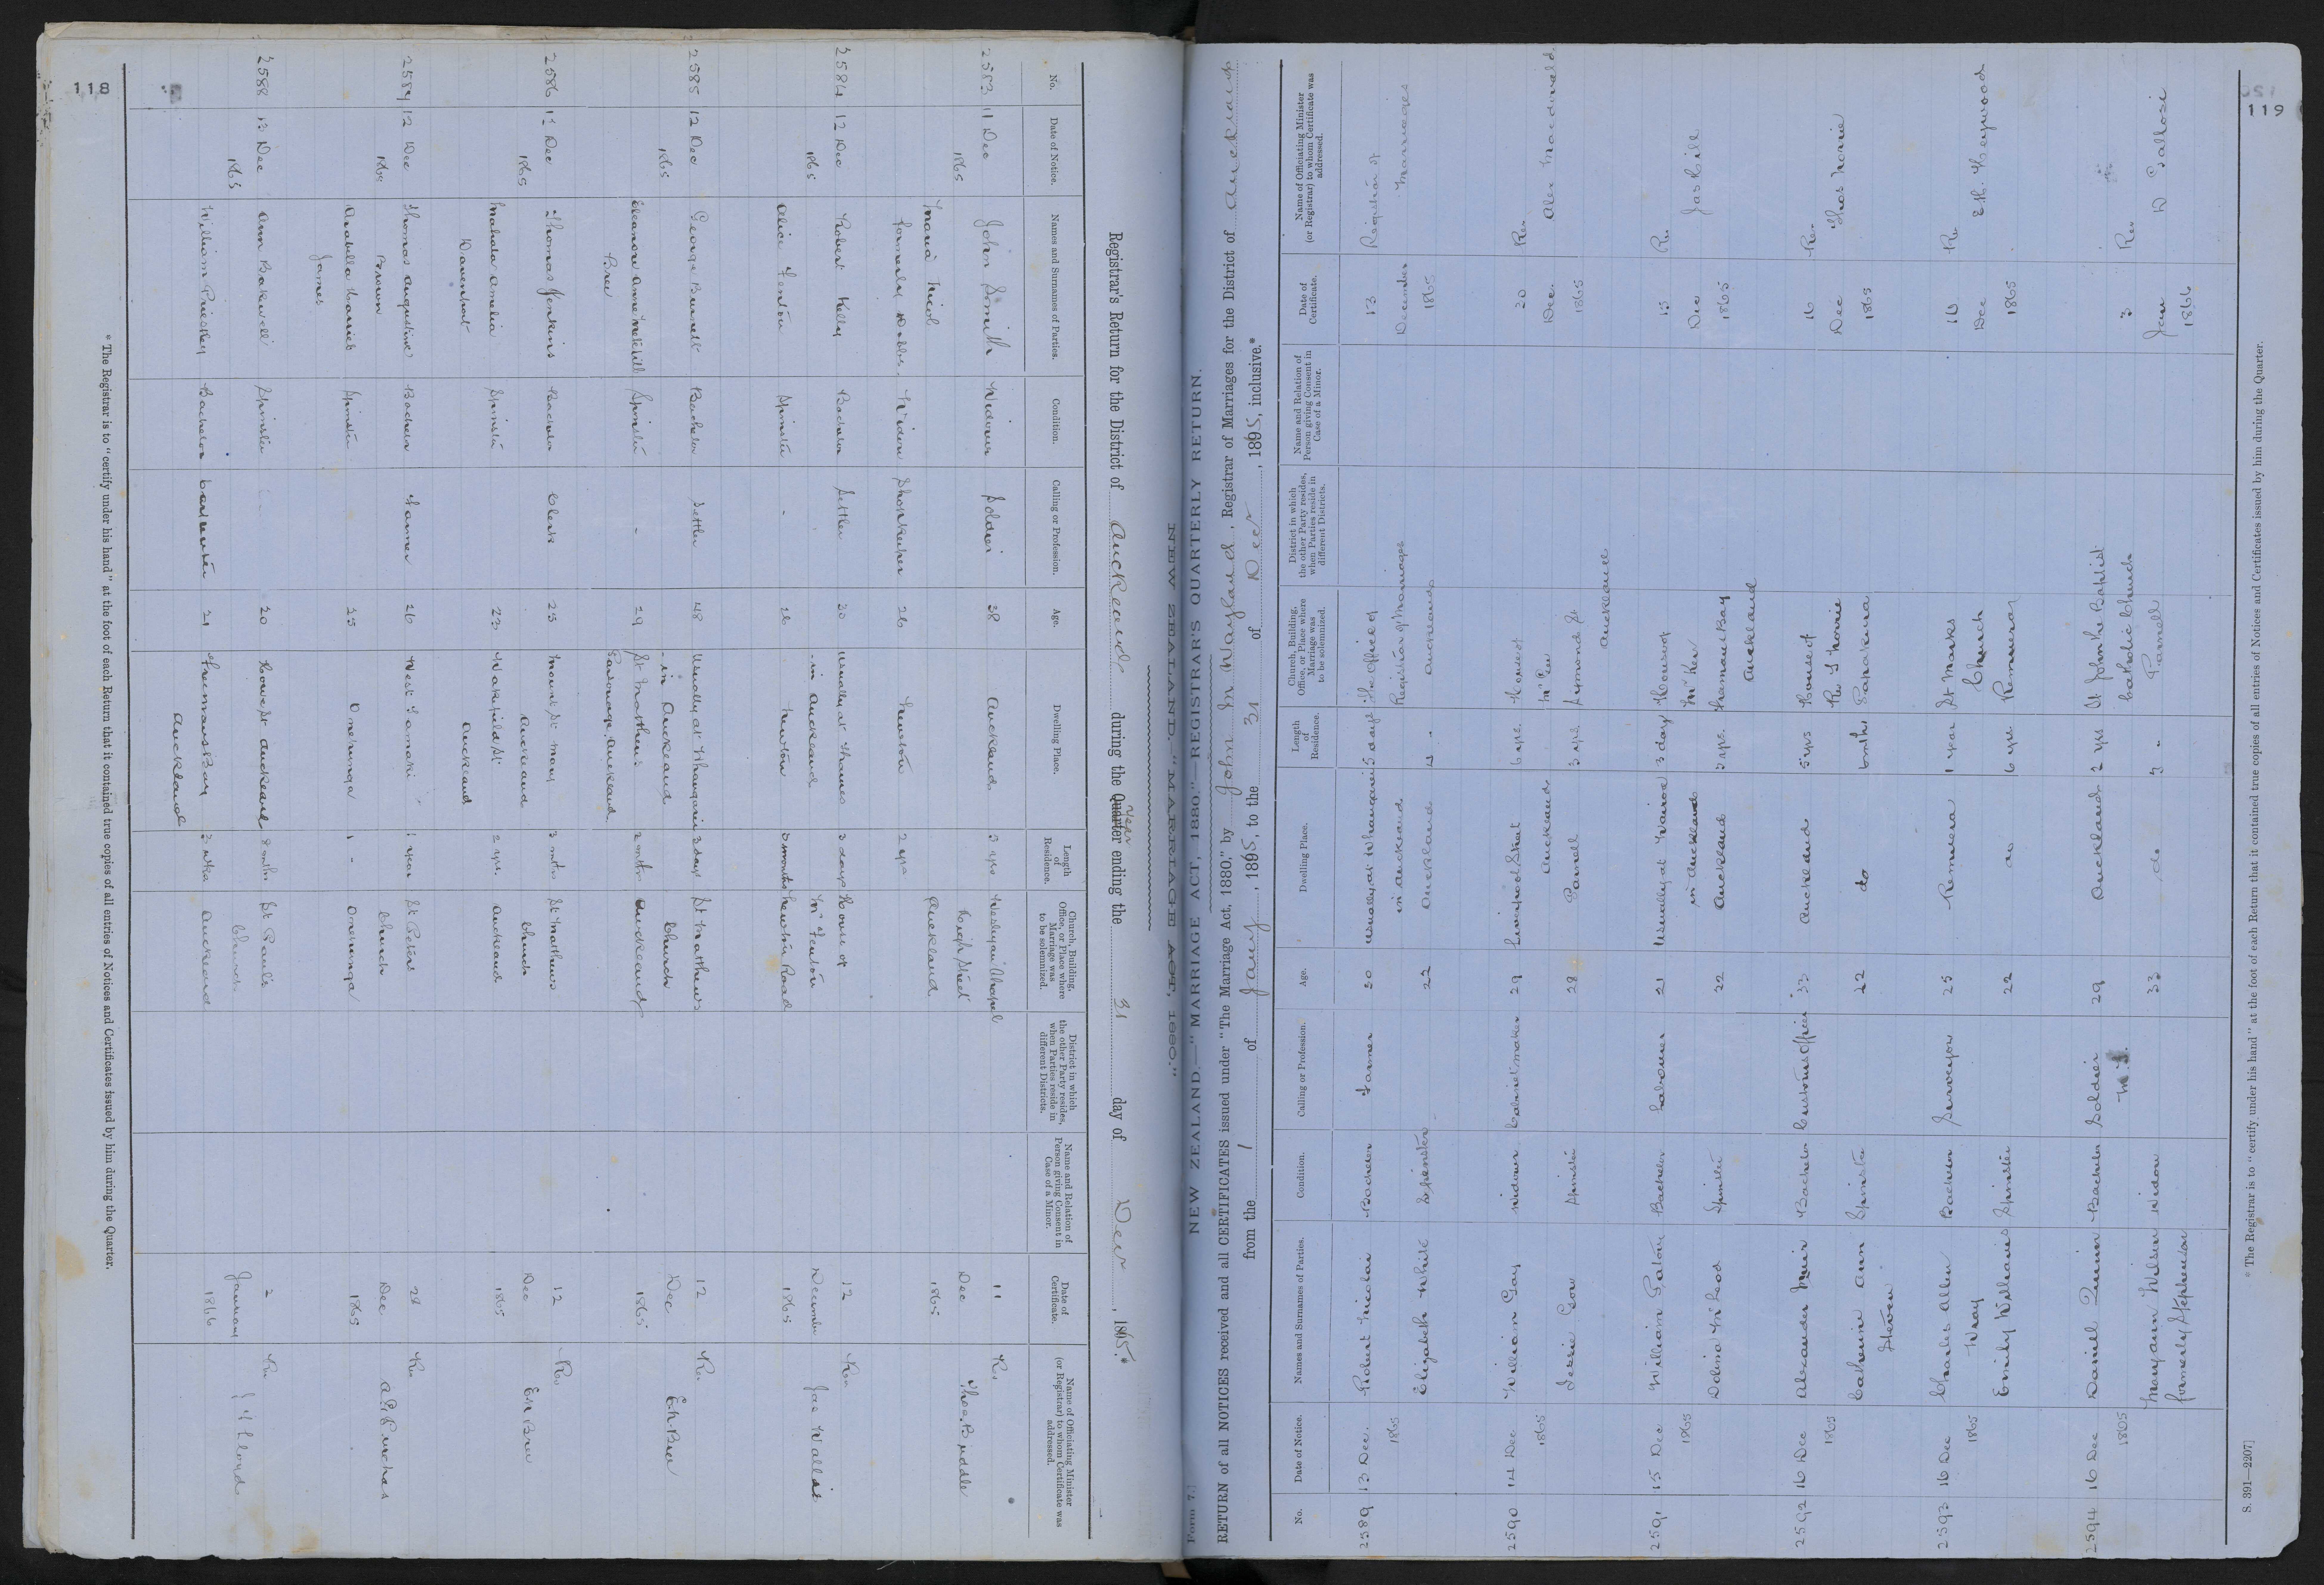 118
NEW ZEALAND.—"MARRIAGE ACT, 1880."
Registrar's Return for the District of Auckland during the Quarter Year ending the 31 day of Dec, 1865.*
No.
Date of Notice.
Names and Surnames of Parties.
Condition.
Calling or Profession.
Age.
Dwelling Place.
Length of Residence.
Church, Building, Office, or Place where Marriage was to be solemnized.
District in which the other Party resides, when Parties reside in different Districts.
Name and Relation of Person giving Consent in Case of a Minor.
Date of Certificate.
Name of Officiating Minister (or Registrar) to whom Certificate was addressed.
2583 11 Dec 1865
John Smith Widower Soldier 38 Auckland 3 yrs
Maria Nicol formerly Widow Shopkeeper 26 Newton 2 yrs
Wesleyan Chapel High Street Auckland
11 Dec 1865
Rev Thos. Buddle
2584 12 Dec 1865
Robert Kelly Bachelor Settler 30 Usually at Thames - in Auckland 3 days
Alice Fenton Spinster - Newton 3 months
House of Mr Fenton Newton Road
12 December 1865
Rev Jas Wallis
2585 12 Dec 1865
George Burnett Bachelor Settler 48 Usually at Whangarei - in Auckland 3 days
Eleanore Anne Bree Spinster - 29 St Matthews Parsonage, Auckland 2 mths
St Matthews Church Auckland
12 Dec 1865
Rev E N Bree
2586 12 Dec 1865
Thomas Jenkins Bachelor Clerk 25 Mount St Auckland 3 mths
Mahala Amelia Davenport Spinster 23 Wakefield St Auckland 2 yrs.
St Matthews Church Auckland
12 Dec 1865
Rev E N Bree
2587 12 Dec 1865
Thomas Augustine Brown Bachelor Farmer 26 West Tamaki 1 year
Arabella Harriet James Spinster 25 Onehunga 1 -
St Peters Church Onehunga
28 Dec 1865
Rev A G Purchas
2588 13 Dec 1865
Ann Bakewell Spinster 20 Rowe St Auckland 8 mths
William Priestley Bachelor Carpenter 21 Freemans Bay Auckland 3 wks
St Pauls Church Auckland
2 January 1866
Rev J F Lloyd
* The Registrar is to "certify under his hand" at the foot of each Return that it contained true copies of all entries of Notices and Certificates issued by him during the Quarter.
119
Form 7.]
NEW ZEALAND.—"MARRIAGE ACT, 1880."—REGISTRAR'S QUARTERLY RETURN.
RETURN of all NOTICES received and all CERTIFICATES issued under "The Marriage Act, 1880," by John M Wayland, Registrar of Marriages for the District of Auckland
from the 1 of Jany, 1865, to the 31 of Decr, 1865, inclusive.*
No.
Date of Notice.
Names and Surnames of Parties.
Condition.
Calling or Profession.
Age.
Dwelling Place.
Length of Residence.
Church, Building, Office, or Place where Marriage was to be solemnized.
District in which the other Party resides, when Parties reside in different Districts.
Name and Relation of Person giving Consent in Case of a Minor.
Date of Certificate.
Name of Officiating Minister (or Registrar) to whom Certificate was addressed.
2589 13 Dec. 1865
Robert Nicolai Bachelor Farmer 30 Usually at Whangarei in Auckland 5 days
Elizabeth White Spinster 22 Auckland 4 -
The Office of Registrar of Marriages Auckland
13 December 1865
Registrar of Marriages
2590 14 Dec 1865
William Gay Widower Cabinetmaker 29 Liverpool Street Auckland 6 yrs.
Jessie Gow Spinster 28 Parnell 3 yrs.
House of Symonds St Auckland
20 Dec. 1865
Rev Alex Macdonald
2591 15 Dec 1865
William Paton Bachelor Labourer 21 Usually at Wairoa in Auckland 3 days
Dolina McLeod Spinster 22 Auckland 3 yrs.
House of Mr Kew Freemans Bay Auckland
15 Dec 1865
Rev Jas Hill
2592 16 Dec 1865
Alexander Muir Bachelor Customs Officer 33 Auckland 5 yrs
Catherine Ann Steven Spinster 22 do 6 mths
House of Rev T Norrie Papakura
16 Dec 1865
Rev Thos Norrie
2593 16 Dec 1865
Charles Allen Wray Bachelor Surveyor 25 Remuera 1 year
Emily Williams Spinster 22 do 6 yrs.
St Marks Church Remuera
16 Dec 1865
Rev E H. Heywood
2594 16 Dec 1865
Daniel Quinn Bachelor Soldier 29 Auckland 2 yrs
Maryann Wilson formerly Stephenson Widow 33 do 3 -
St John the Baptist Catholic Church Parnell
3 Jan 1866
Rev
S. 391—2207]
* The Registrar is to "certify under his hand" at the foot of each Return that it contained true copies of all entries of Notices and Certificates issued by him during the Quarter.